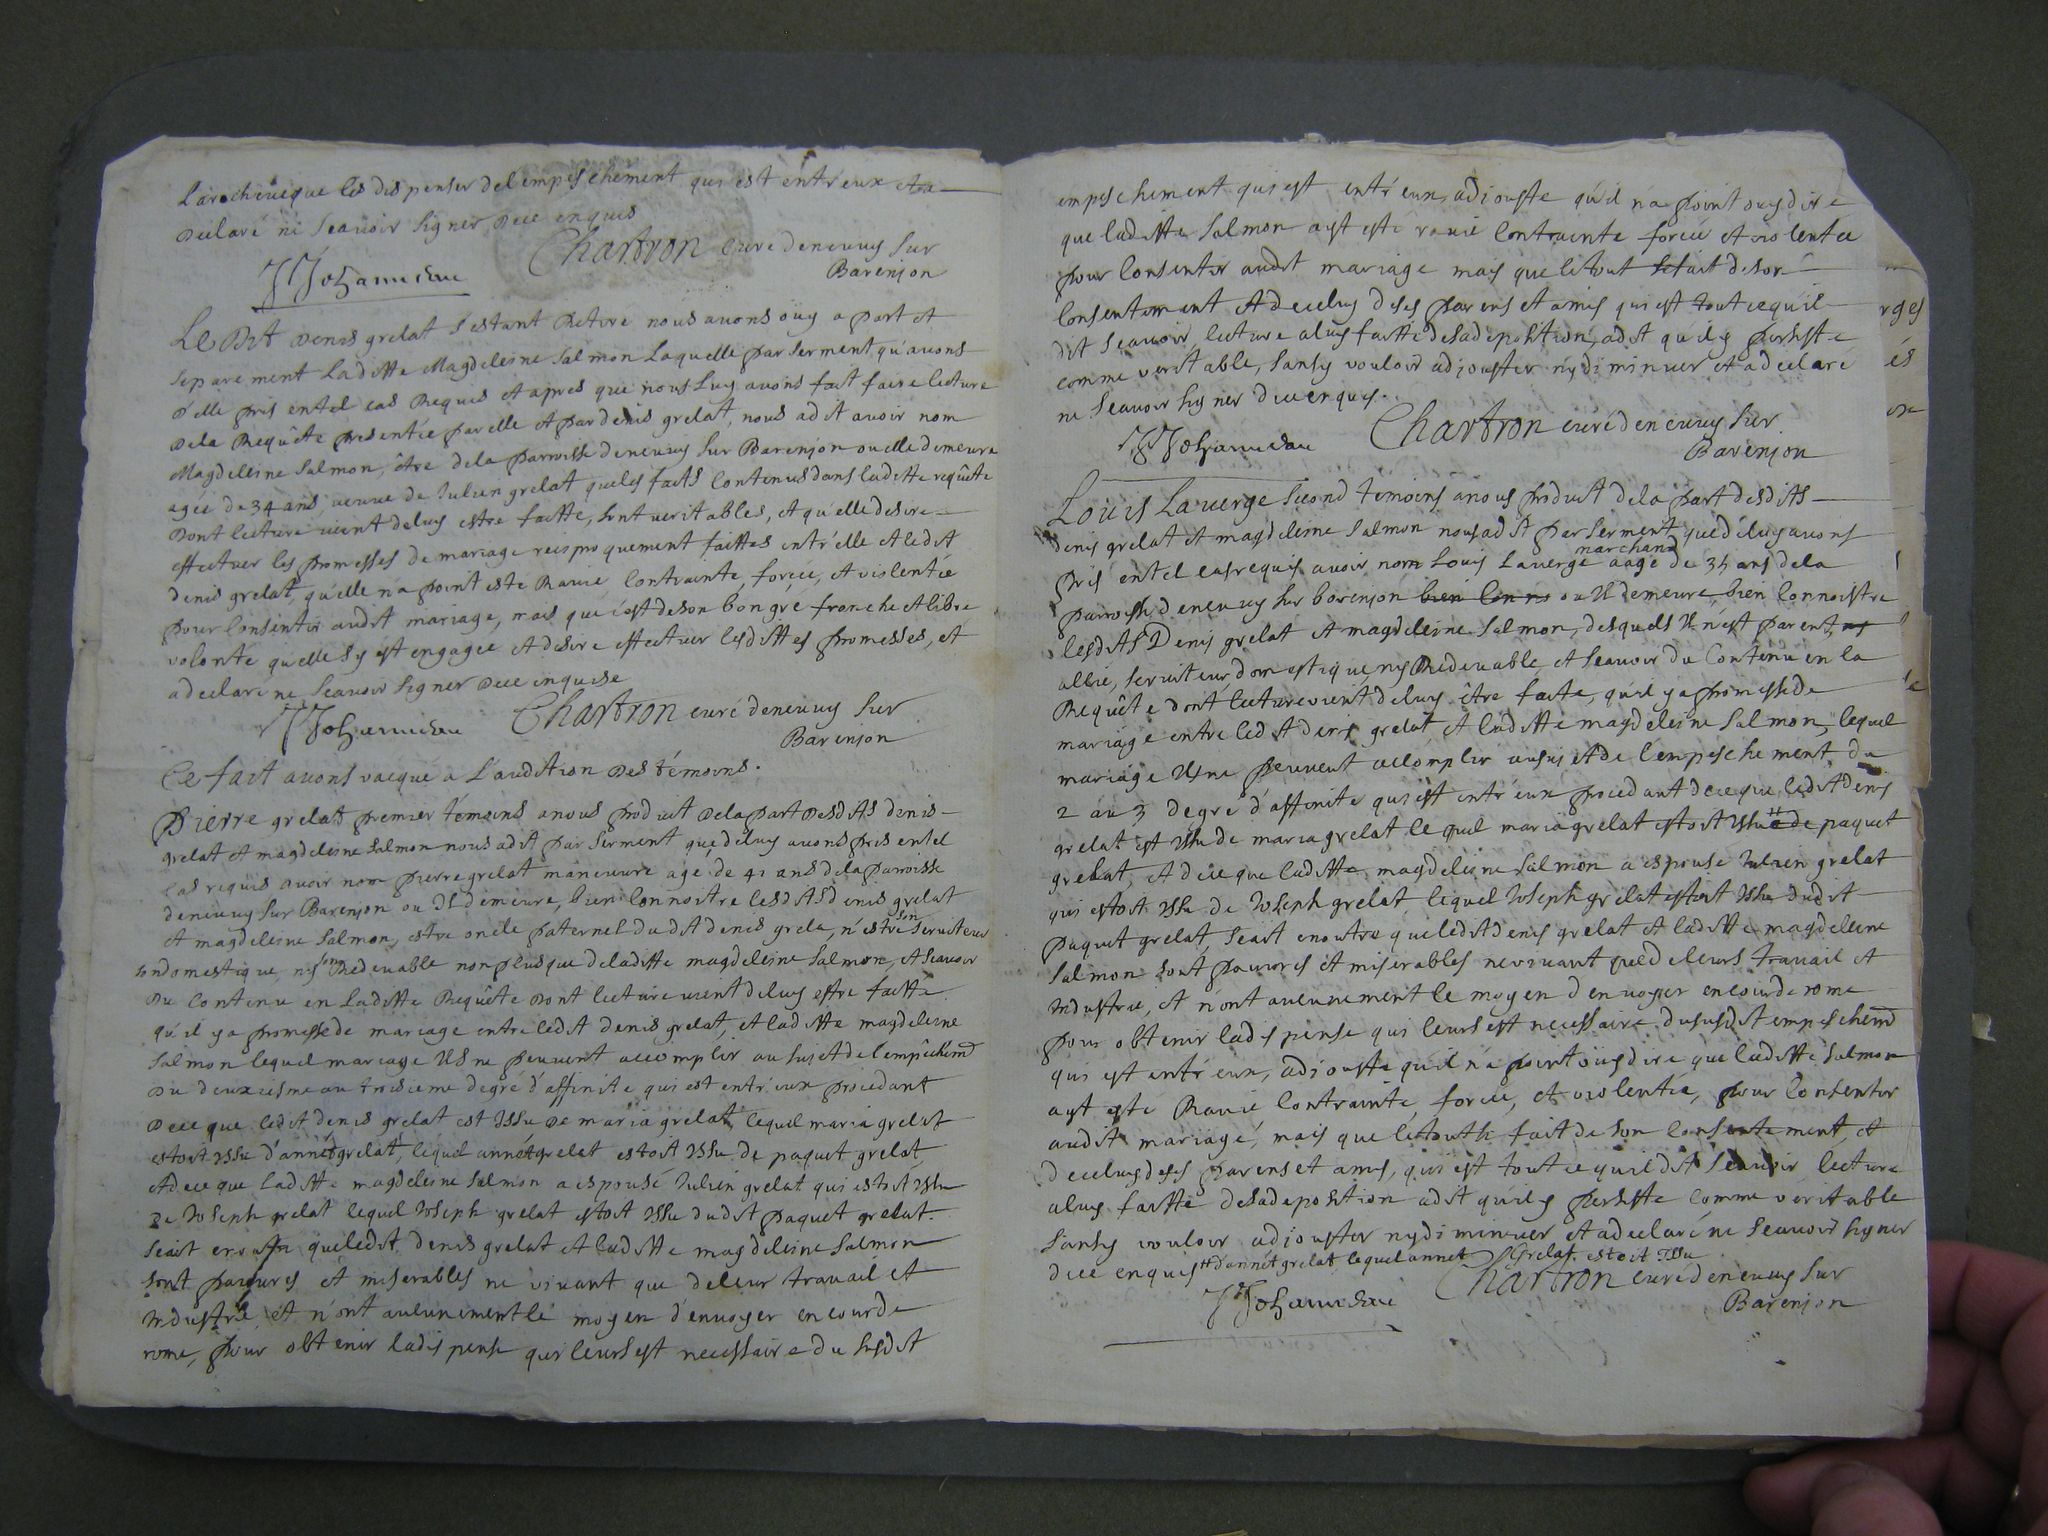 L'arochevêque les dispenser del empeschement qui est entr'eux et a
Declaré ni Scauoir signer Dece enquis
Chartron curé deneuuy sur
Barenjon
JJohanneau
LeDit Denis grelat s'estant Retiré nous auons ouy a part et
separement Laditte Magdeleine Salmon Laquelle par serment qu'auons
d'elle pris entel cas Requis et apres que nous Luy auons fait faire lecture
dela Requête presentée par elle et par denis grelat, nous adit auoir nom
Magdeleine Salmon, être dela parroisse deneuuy sur Barenjon ou elle demeure
agée de 34 ans veuve de Julien grelat queles faits contenus dans laditte requête
dont lecture vient deluy estre faitte, sont veritables, et qu'elle desire
effectuer les promesses de mariage reisproquement faittes entr'elle et ledit
denis grelat, qu'elle n'a point esté Rauie contrainte, forcée, et violentée
pour consentir audit mariage, mais que c'est deson bon gré franche et libre
volonté quelle sy est engagée et desire effectuer lesdittes promesses, et
adeclaré ne scauoir signer dece enquise
JJohanneau Chartron curé deneuuy sur
Barenjon
Ce fait auons vacqué a L'audition des témoins.
Pierre grelat premier témoins anous produit dela part desdits denis
grelat et magdeleine Salmon nous adit par serment que deluy auons pris entel
cas requis auoir nom pierre grelat maneuure agé de 41 ans dela parroisse
deneuuy sur Barenjon ou Il demeure, bien connoitre lesdits denis grelat
et magdeleine Salmon, estre oncle paternel dudit denis grela, n'estre son seruiteur
son domestique, ny son Redeuable non plusque deladitte magdeleine Salmon, et scauoir
du contenu en Laditte Requête dont lecture vient deluy estre faitte
qu'il ya promesse de mariage entre ledit denis grelat, et laditte magdeleine
Salmon lequel mariage Ils ne peuuent accomplir au sujet del empêchemt
du deuxiesme au troisieme degré d'affinité qui est entr'eux procedant
dece que ledit denis grelat est Issu de maria grelat, lequel maria grelat
estoit issu d'annét grelat, lequel annét grelat estoit issu de paquet grelat
et dece que laditte magdeleine Salmon a espousé Julien grelat qui estoit issu
de Joseph grelat lequel Joseph grelat estoit issu dudit paquet grelat.
scait en outre queledit denis grelat et laditte magdeleine Salmon
sont pauures et miserables ne viuant que deleur trauail et
Industrie, et n'ont aucunement le moyen d'enuoyer en cour de
rome, pour obtenir ladispense qui leurs est necessaire du susdit
empeschement qui est entr'eux, adjouste qu'il n'a point ouy dire
que laditte Salmon ayt esté rauie contrainte forcée et violentée
pour consentir audit mariage mais que le tout se fait deson
consentement et deceluy deses parens et amis qui est tout cequ'il
dit scauoir, lecture aluy faitte desa deposition, adit qu'il y persiste
comme veritable, sans y vouloir adjouster ny diminuer et adeclaré
ne scauoir signer dece enquis.
JJohanneau Chartron curé deneuuy sur
Barenjon
Louis Lauerge second témoins anous produit dela part desdits
denis grelat et magdeleine Salmon nous adit par serment que d'éluy auons
pris entel cas requis auoir nom Louis Lauerge marchand aagé de 34 ans dela
parroisse deneuuy sur barenjon bien conno ou Il demeure, bien connoistre
lesdits Denis grelat et magdeleine Salmon, desquels Il n'est parent, ny
allié, seruiteur domestique ny Redeuable et scauoir du contenu en la
Requête dont lecture vient deluy être faite, qu'il ya promesse de
mariage entre ledit denis grelat, et laditte magdeleine Salmon, lequel
mariage Ils ne peuuent accomplir au sujet de l'empeschement du
2 au 3 degré d'affinité qui est entr'eux procedant dece que ledit denis
grelat est Issu de maria grelat lequel maria grelat estoit Issu # de paquet
grelat, et dece que laditte magdeleine Salmon a espousé Julien grelat
qui estoit Issu de Joseph grelat, lequel Joseph grelat estoit Issu dudit
paquet grelat, scait enoutre queledit denis grelat et laditte magdeleine
Salmon sont pauures et miserables neviuant que de leurs trauail et
Industrie, et n'ont aucunement le moyen d'enuoyer en cour de rome
pour obtenir ladispense qui leurs est necessaire dususdit empeschemt
qui est entr'eux, adjouste qu'il n'a point ouy dire que laditte Salmon
ayt esté Rauie contrainte, forcée, et violentée, pour consentir
audit mariage, mais que letout se fait de son consentement, et
deceluy deses parens et amis, qui est tout ce qu'il dit scauoir lecture
aluy faitte desa deposition adit qu'il y persiste comme véritable
sans y vouloir adjouster ny diminuer et adeclaré ne scauoir signer
dece enquis # d'annét grelat lequel annet Grelat estoit Issu
JJohanneau Chartron curé deneuuy sur
Barenjon